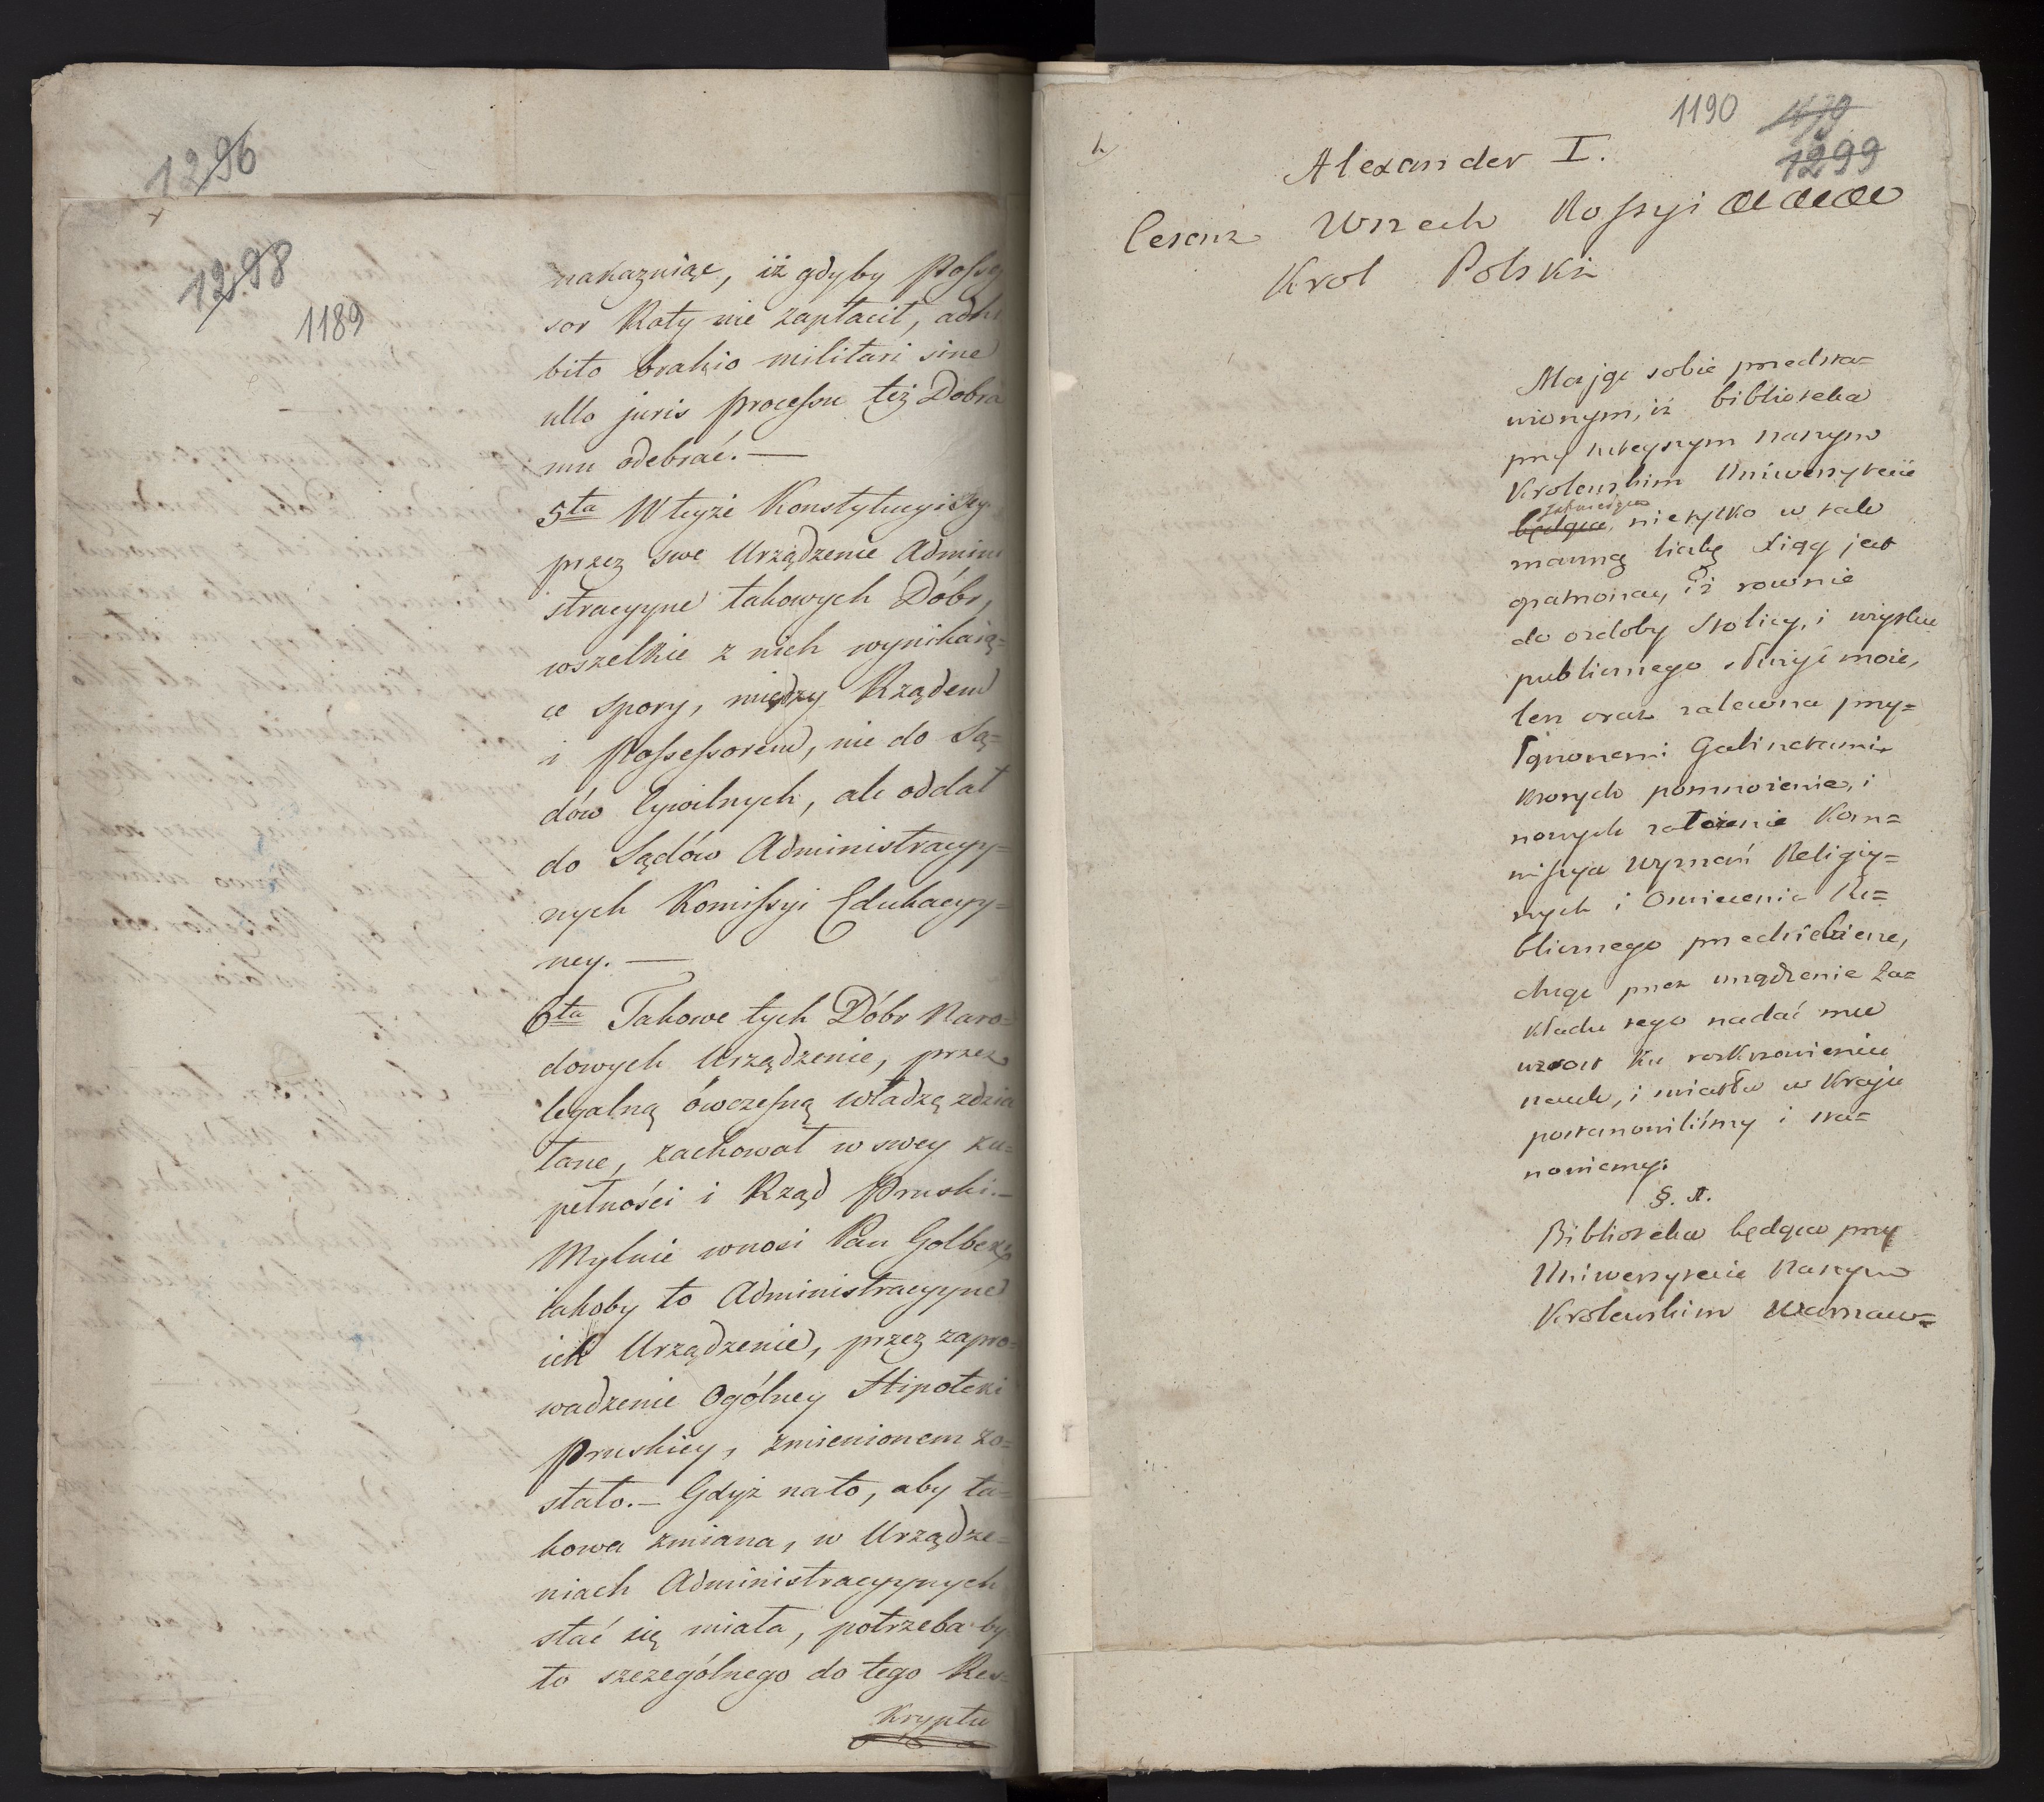 1296
1298
1189
nakazuiąc, iż gdyby Posses
sor Raty nie zapłacił, adhi
bito brahio militari sine
ullo juris processu też Dobra
mu odebrać. —
5ta W teyże Konstytucyi Sey.
przez swe Urządzenie Admini
stracyyne takowych Dóbr,
wszelkie z nich wynikaią=
ce spory, między Rządem
i Possessorem, nie do Są=
dów Cywilnych, ale oddał
do Sądów Administracyy=
nych Komissyi Edukacyy=
ney. —
6ta Takowe tych Dóbr Naro=
dowych Urządzenie, przez
legalną ówczesną władzę zdzia
łane, zachował w swey zu=
pełności i Rząd Pruski. —
Mylnie wnosi Pan Golberg
iakoby to Administracyyne
ich Urządzenie, przez zapro=
wadzenie Ogólney Hipoteki
Pruskiey, zmienionem zo=
stało. — Gdyż na to, aby ta=
kowa zmiana, w Urządze=
niach Administracyynych
stać się miała, potrzeba by
to szczególnego do tego Res=
kryptu
1190
1299
Alexander I.
Cesarz Wszech Rossyi &c &c &c
Krol Polski
Mając sobie przedsta=
wionym, iż biblioteka
przy tuteyszym naszym
Krolewskim Uniwersytecie
będąca, nietylko w tak
znaczną liczbę xiąg jest
opatrzona, iż rownie
do ozdoby Stolicy, i użytku
publicznego służyć może,
lecz oraz zalecona przy=
łączonemi Gabinetami,
ktorych pomnożenie, i
nowych założenie Kom=
missya Wyznań Religiy=
nych i Oswiecenia Pu=
blicznego przedsiebierze,
chcąc przez urządzenie Za=
kładu tego nadać mu
wzrost ku rozkrzewieniu
nauk, i światła w Kraju
postanowiliśmy i sta=
nowiemy:
§. 1.
Biblioteka będąca przy
Uniwersytecie Naszym
Krolewskim Warszaw=